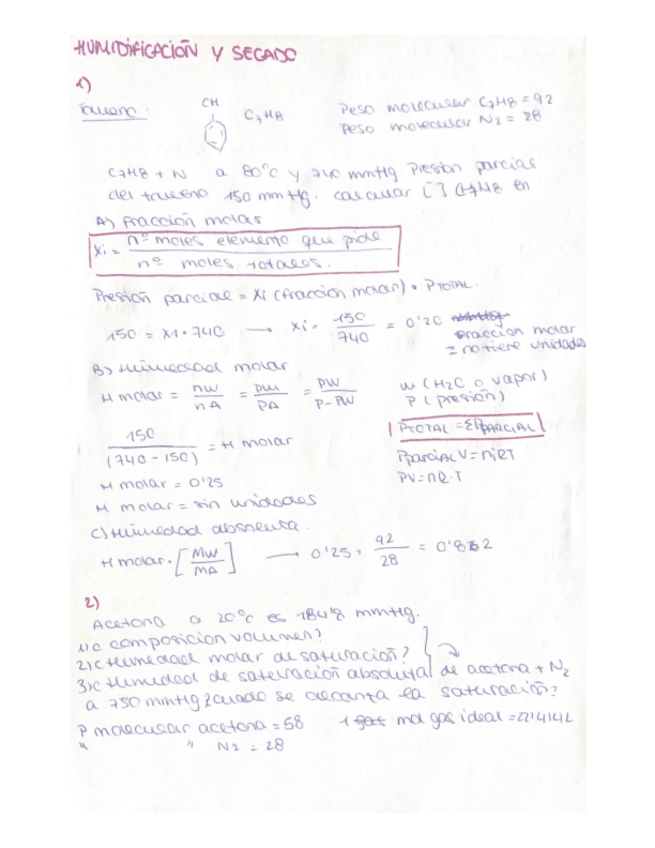 HUMIDIFICACIÓN Y SECADO
1)
Tolueno: CH C7H8 Peso molecular C7H8 = 92
Peso molecular N2 = 28
C7H8 + N a 80ºC y 740 mmHg Presión parcial
del tolueno 150 mmHg. calcular [ ] C7H8 en
A) fracción molar
Xi = nº moles elemento que pide / nº moles totales.
Presión parcial = Xi (fracción molar) · PTOTAL.
150 = X1 · 740 → Xi = 150 / 740 = 0'20 mmHg fracción molar
= no tiene unidades
B) Humedad molar
H molar = nW / nA = PW / PA = PW / P-PW
W (H2O o vapor)
P (presión)
PTOTAL = ΣPPARCIAL
150 / (740 - 150) = H molar
Pparcial V = niRT
PV = nR·T
H molar = 0'25
H molar = sin unidades
C) Humedad absoluta.
H molar · [MW / MA] → 0'25 · 92 / 28 = 0'82
2)
Acetona a 20ºC es 184'8 mmHg.
1) c composicion volumen?
2) c Humedad molar de saturación?
3) c Humedad de saturación absoluta de acetona + N2
a 750 mmHg cuando se alcanza la saturación?
P molecular acetona = 58 1 gas mol gas ideal = 22'414L
" " N2 = 28